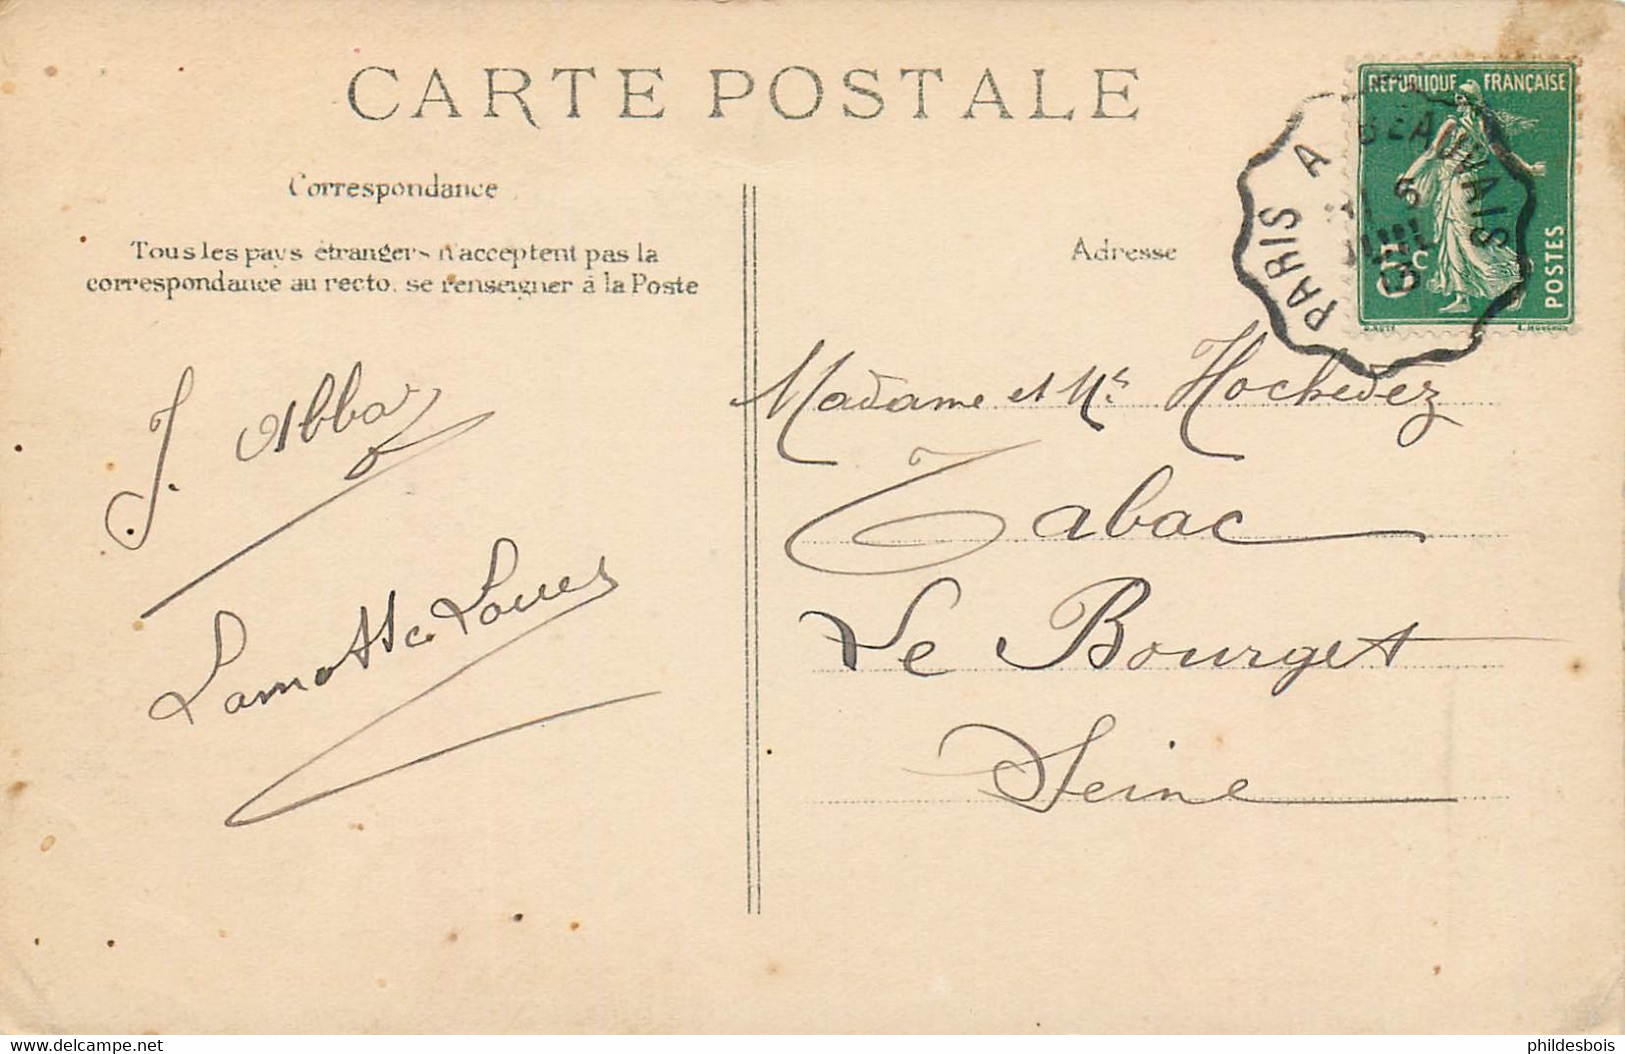 CARTE POSTALE
Correspondance
Tous les pays étrangers n'acceptent pas la
correspondance au recto. se renseigner à la Poste
J. Abba
Lamotte Louis
Adresse
Madame et Mr Hochedez
Tabac
Le Bourget
Seine
RÉPUBLIQUE FRANÇAISE
5c
POSTES
PARIS A BEAUVAIS
13
www.delcampe.net
phildesbois